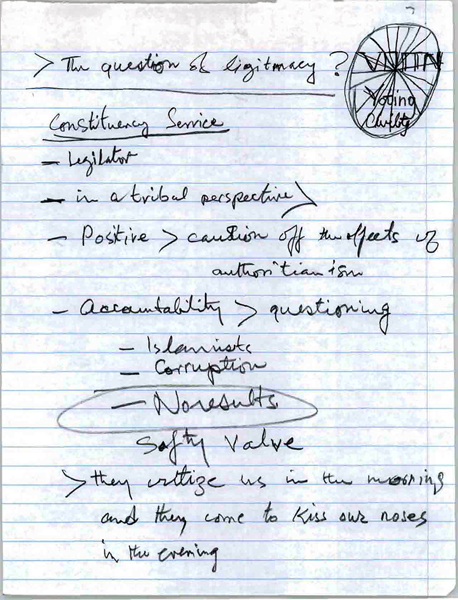 > The question of legitmacy ?
VOTIN
Voting
Constituency Service
- Legilator
- in a tribal perspective >
- Positive > caution off the effects of
authoritianism
- Accountability > questioning
- Islamists
- Corruption
- No results
Safty Valve
> they critize us in the morning
and they come to kiss our noses
in the evening